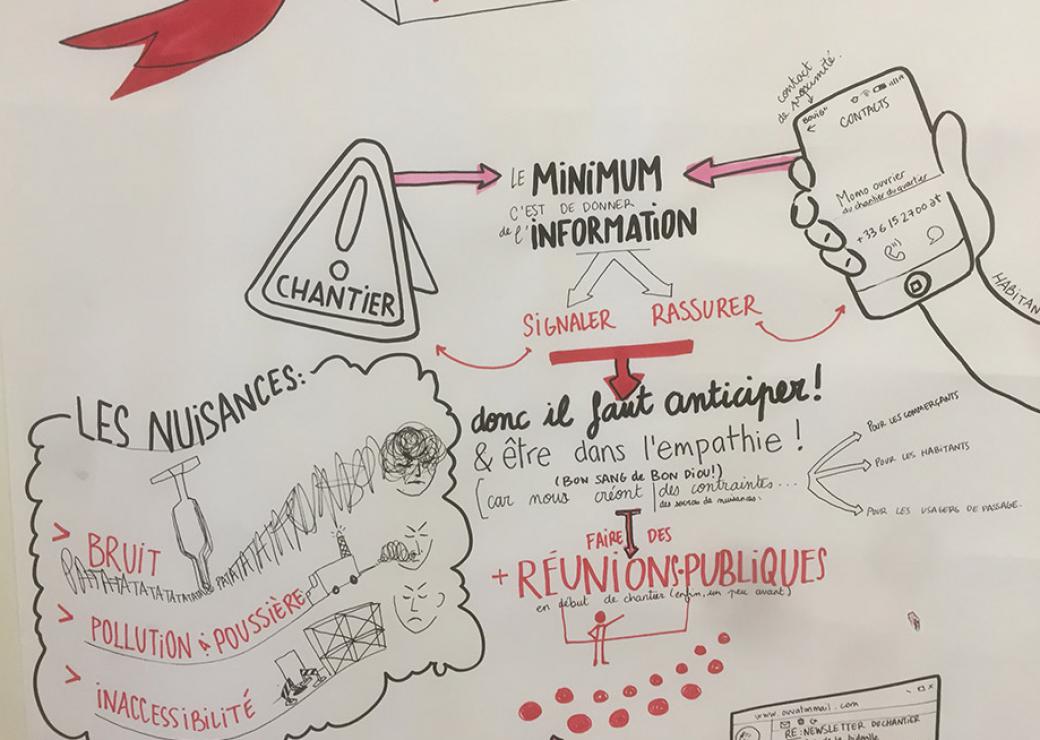 contact
de proximité.
CONTACTS
Momo ouvrier
du chantier du quartier
HABITAN
LE MINIMUM
C'EST DE DONNER
de l'INFORMATION
CHANTIER
SIGNALER RASSURER
donc il faut anticiper!
& être dans l'empathie !
(BON SANG de BON DIOU!)
car nous créont des contraintes...
des sources de nuisances.
POUR LES COMMERÇANTS
POUR LES HABITANTS
POUR LES USAGERS DE PASSAGE.
FAIRE DES
+ RÉUNIONS PUBLIQUES
en début de chantier (enfin, un peu avant)
LES NUISANCES:
> BRUIT
PATATATATATATATATATA
> POLLUTION & POUSSIÈRE
> INACCESSIBILITÉ
RE: NEWSLETTER DE CHANTIER